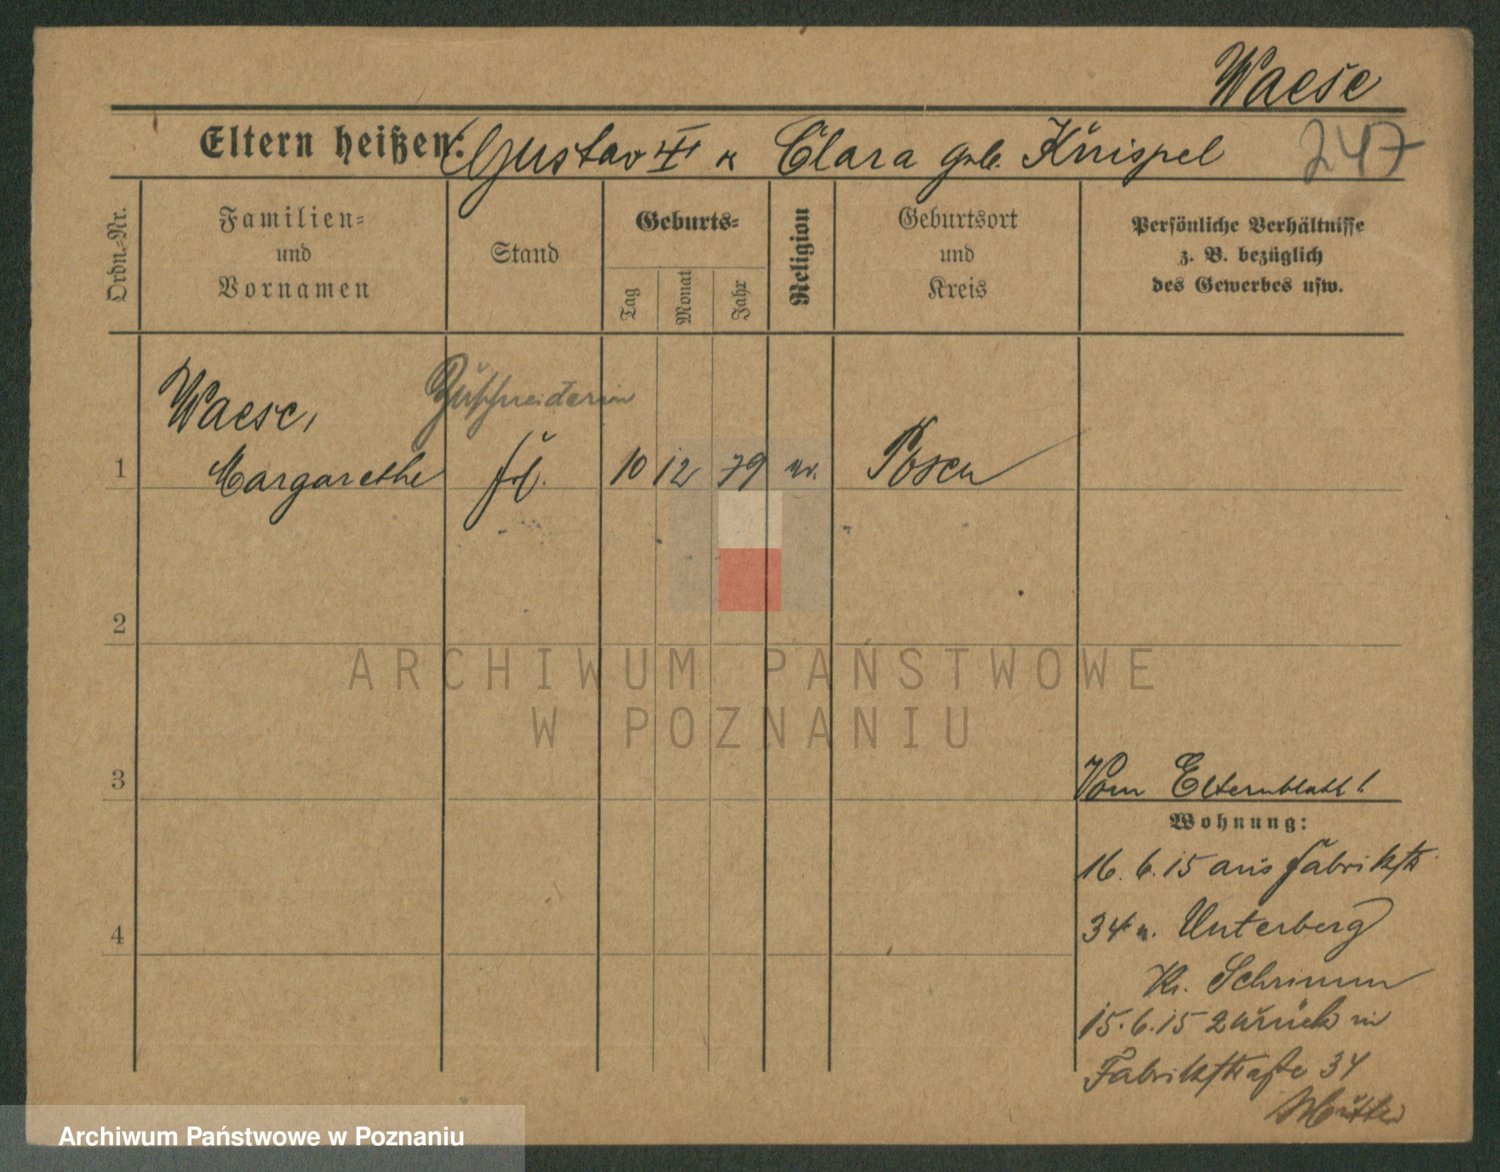 Waese
Eltern heißen: Gustav II u Clara geb. Knispel
247
Ordn.-Nr.
Familien-
und
Vornamen
Stand
Geburts-
Tag
Monat
Jahr
Religion
Geburtsort
und
Kreis
Persönliche Verhältnisse
z. B. bezüglich
des Gewerbes usw.
Zuschneiderin
Waese,
1 Margarethe frl. 10 12 79 ev. Posen
2
ARCHIWUM PAŃSTWOWE
W POZNANIU
3
Vom Elternblatt!
Wohnung:
16. 6. 15 aus Fabrikstr.
4
34 n. Unterberg
Kr. Schrimm
15. 6. 15 zurück in
Fabrikstraße 34
Mutter
Archiwum Państwowe w Poznaniu